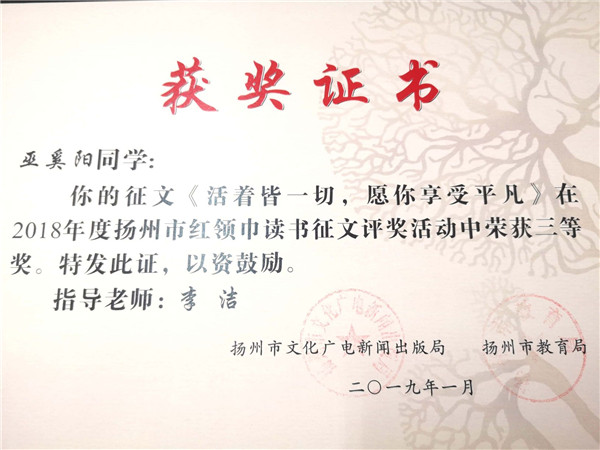 获奖证书
巫奚阳同学：
你的征文《活着皆一切，愿你享受平凡》在
2018年度扬州市红领巾读书征文评奖活动中荣获三等
奖。特发此证，以资鼓励。
指导老师：李 洁
扬州市文化广电新闻出版局 扬州市教育局
二〇一九年一月